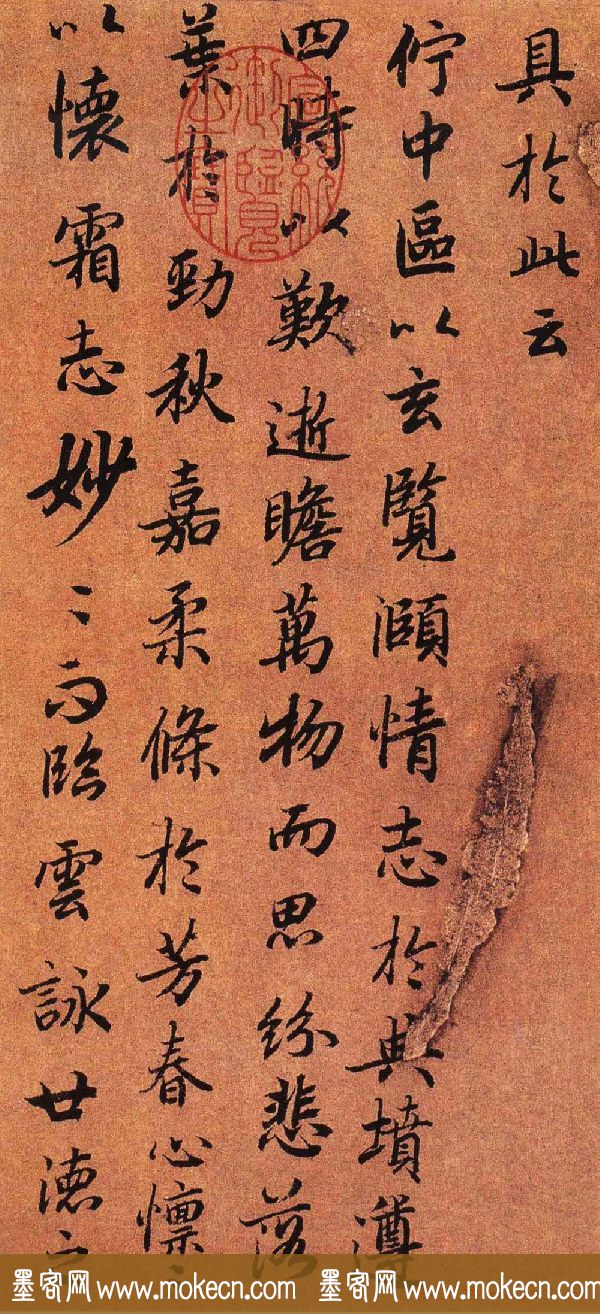 具於此云
佇中區以玄覽頤情志於典墳遵
四時以歎逝瞻萬物而思紛悲落
葉於勁秋嘉柔條於芳春心懍
以懷霜志妙〻而臨雲詠世德
宣統御覽之寶
墨客网 www.mokecn.com 墨客网 www.mokecn.com